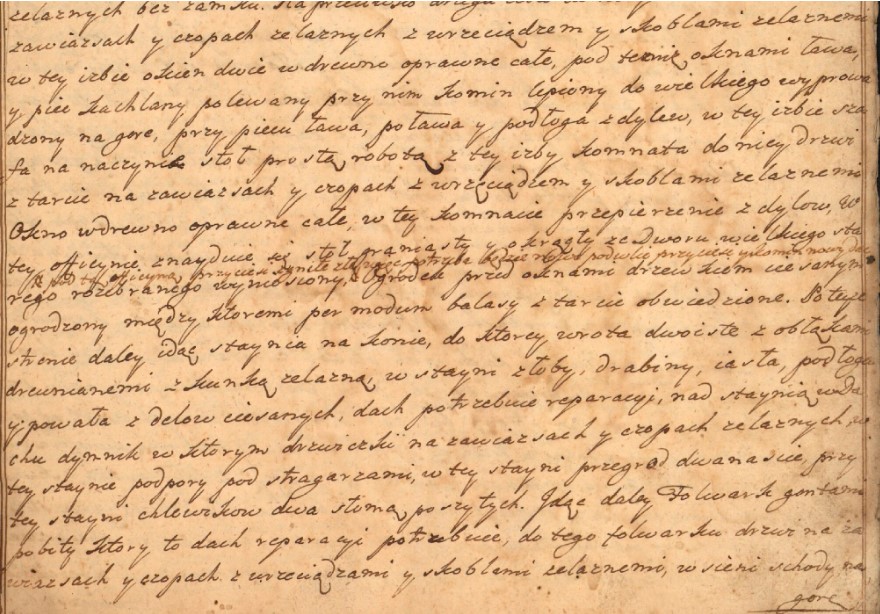 zelaznych bez zamku. Naprzeciwko druga
zawiasach y czopach zelaznych z wrzeciądzem y skoblami zelaznemi
w tey izbie okien dwie w drewno oprawne całe, pod temiż oknami ława,
y piec kachlany polewany przy nim komin lepiony do wielkiego wyprowa
dzony na gore, przy piecu ława, poława y podłoga z dylow, w tey izbie sza
fa na naczynie stoł prostą robotą z tey izby komnata do niey drzwi
z tarcic na zawiasach y czopach z wrzeciądzem y skoblami zelaznemi
Okno w drewno oprawne całe, w tey komnacie przepierzenie z dylow, w
tey officynie znayduie się stoł graniasty y okrągły ze Dworu wielkiego sta
pod tą officyną przyciesi zgniłe potrzeba będzie podwlec przyciesi y komin nowy dać
rego rozebranego wyniosiony, Ogrodek przed oknami drzewkiem ciesanym
ogrodzony między ktoremi per modum balasy z tarcic obwiedzione. Po teyże
stronie daley idąc staynia na konie, do ktorey wrota dwoiste z obłąkami
drewnianemi z kunką zelazną, w stayni złoby, drabiny, iasła, podłoga
y powała z delow ciesanych, dach potrzebuie reparacyi, nad staynią w da
chu dymnik w ktorym drzwiczki na zawiasach y czopach zelaznych, w
tey staynie podpory pod stragarzami, w tey stayni przegrod dwanascie, przy
tey stayni chlewikow dwa słomą poszytych. Idąc daley Folwark gontami
pobity ktory to dach reparacyi potrzebuie, do tego folwarku drzwi na za
wiasach y czopach z wrzeciądzami y skoblami zelaznemi, w sieni schody na
gore